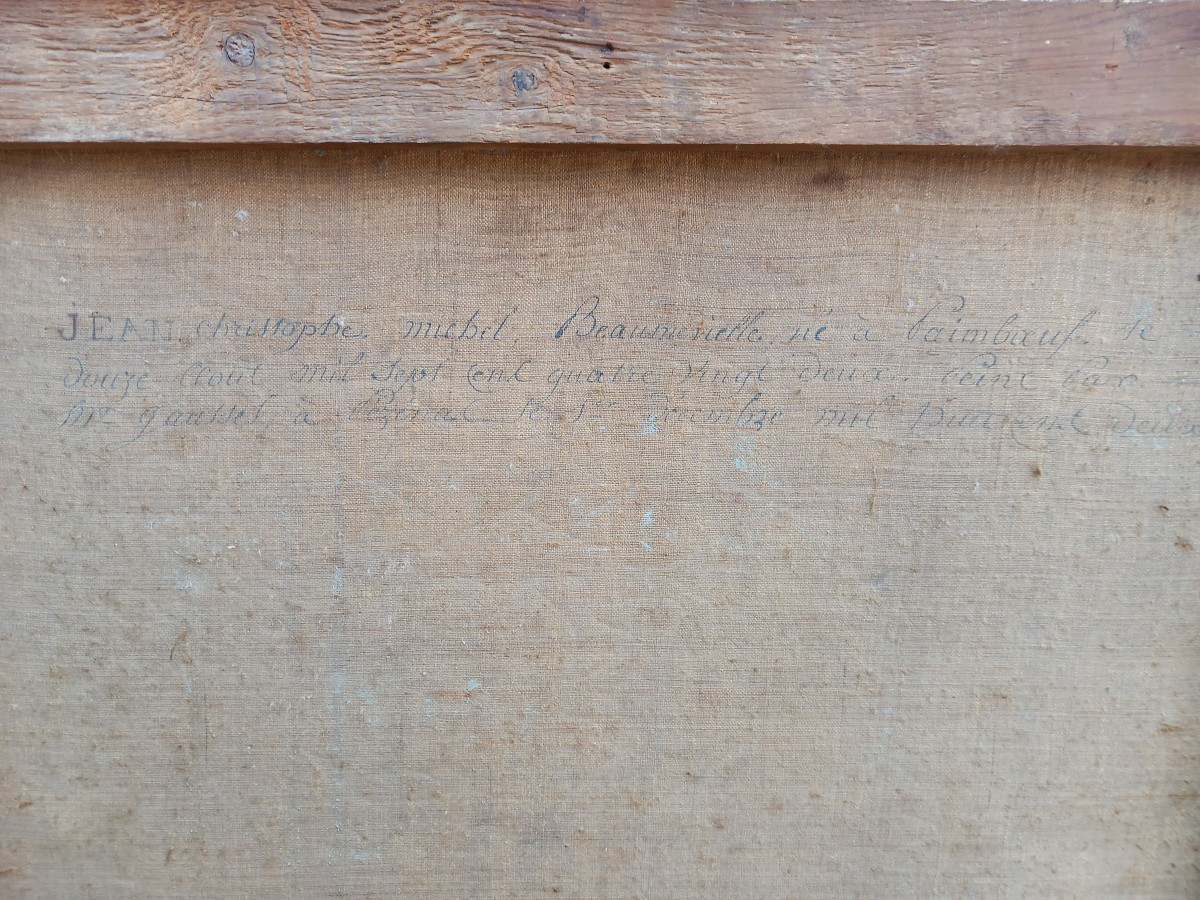 JEAN, christophe. michel. Beaumevielle. né à Paimbœuf. le
douze Aout mil sept cent quatre vingt deux. peint par
gausset, à le 1er decembre mil huit cent deux